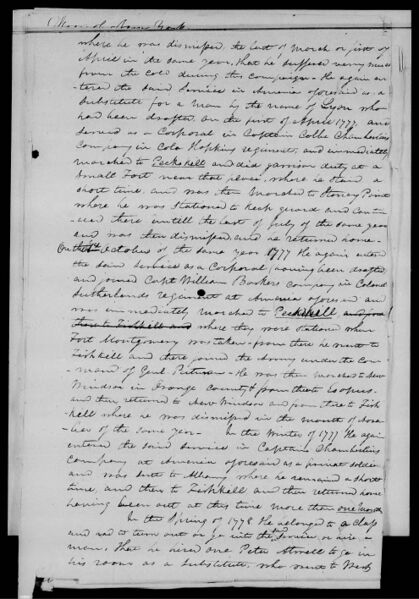 where he was dismissed the last of March or first of
April in the same year, that he suffered very much
from the cold during this campaign - He again en-
tered the said service in America aforesaid as a
Substitute for a man by the name of Lyon who
had been drafted, on the first of April 1777 and
served as a Corporal in Captain Colbe Chamberlins
Company in Colo Hopkins regiment, and immediately
marched to Peekskill and did garrison duty at a
Small Fort near that place, where he staid a
short time, and was then marched to Stoney Point
where he was stationed to keep guard and contin-
ued there untill the last of July of the same year
and was then dismissed, and he returned home -
On the October of the same year 1777 He again entered
the said service as a Corporal (having been drafted
and joined Capt William Barkers company in Colonel
Sutherlands regiment at America aforesaid and
was immediately marched to Peekskill and from
there to Fishkill and where they were stationed when
Fort Montgomery was taken - from there he went to
Fishkill and there joined the Army under the Com-
mand of Genl Putnam - He was then marched to New
Windsor in Orange county & from there to Esopus
and then returned to New Windsor and from there to Fish
kill where he was dismissed in the month of Novem-
ber of the same year - In the Winter of 1777 He again
entered the said service in Captain Chamberlins
company at America aforesaid as a private soldier
and was sent to Albany where he remained a short
time, and then to Fishkill and then returned home
having been out at this time more than one month
In the Spring of 1778 He belonged to a class
and had to turn out or go into the service, or hire a
man, that he hired one Peter Atwell to go in
his room as a Substitute, who went to